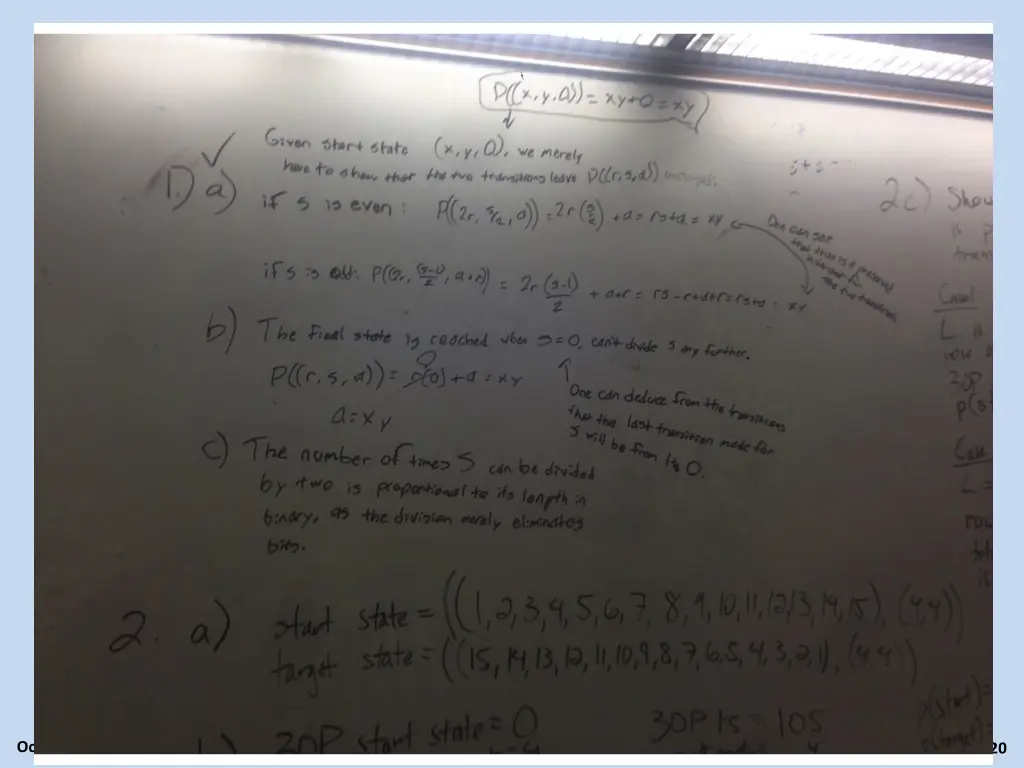 P((x, y, 0)) = xy + 0 = xy
Given start state (x, y, 0), we merely
have to show that the two transitions leave P((r, s, a))
1.) a)
if s is even: P((2r, s/2, a)) = 2r(s/2) + a = rs + a = xy
One can see
that this is a preserved
invariant for
the two transitions
if s is odd: P((2r, (s-1)/2, a+r)) = 2r(s-1)/2 + a+r = rs - r + a + r = rs + a = xy
b) The final state is reached when s = 0, can't divide s any further.
P((r, s, a)) = r(0) + a = xy
0
a = xy
One can deduce from the transitions
that the last transition made for
S will be from 1 to 0.
c) The number of times S can be divided
by two is proportional to its length in
binary, as the division merely eliminates
bits.
2. a) start state = ((1,2,3,4,5,6,7,8,9,10,11,12,13,14,15), (4,4))
target state = ((15,14,13,12,11,10,9,8,7,6,5,4,3,2,1), (4,4))
30P start state = 0
30P 15 = 105
s + s =
2c) Show
is p
Case 1
L is
row
30P
p(s
Case
L =
row
is
p(start) =
p(target) =
Oc
20